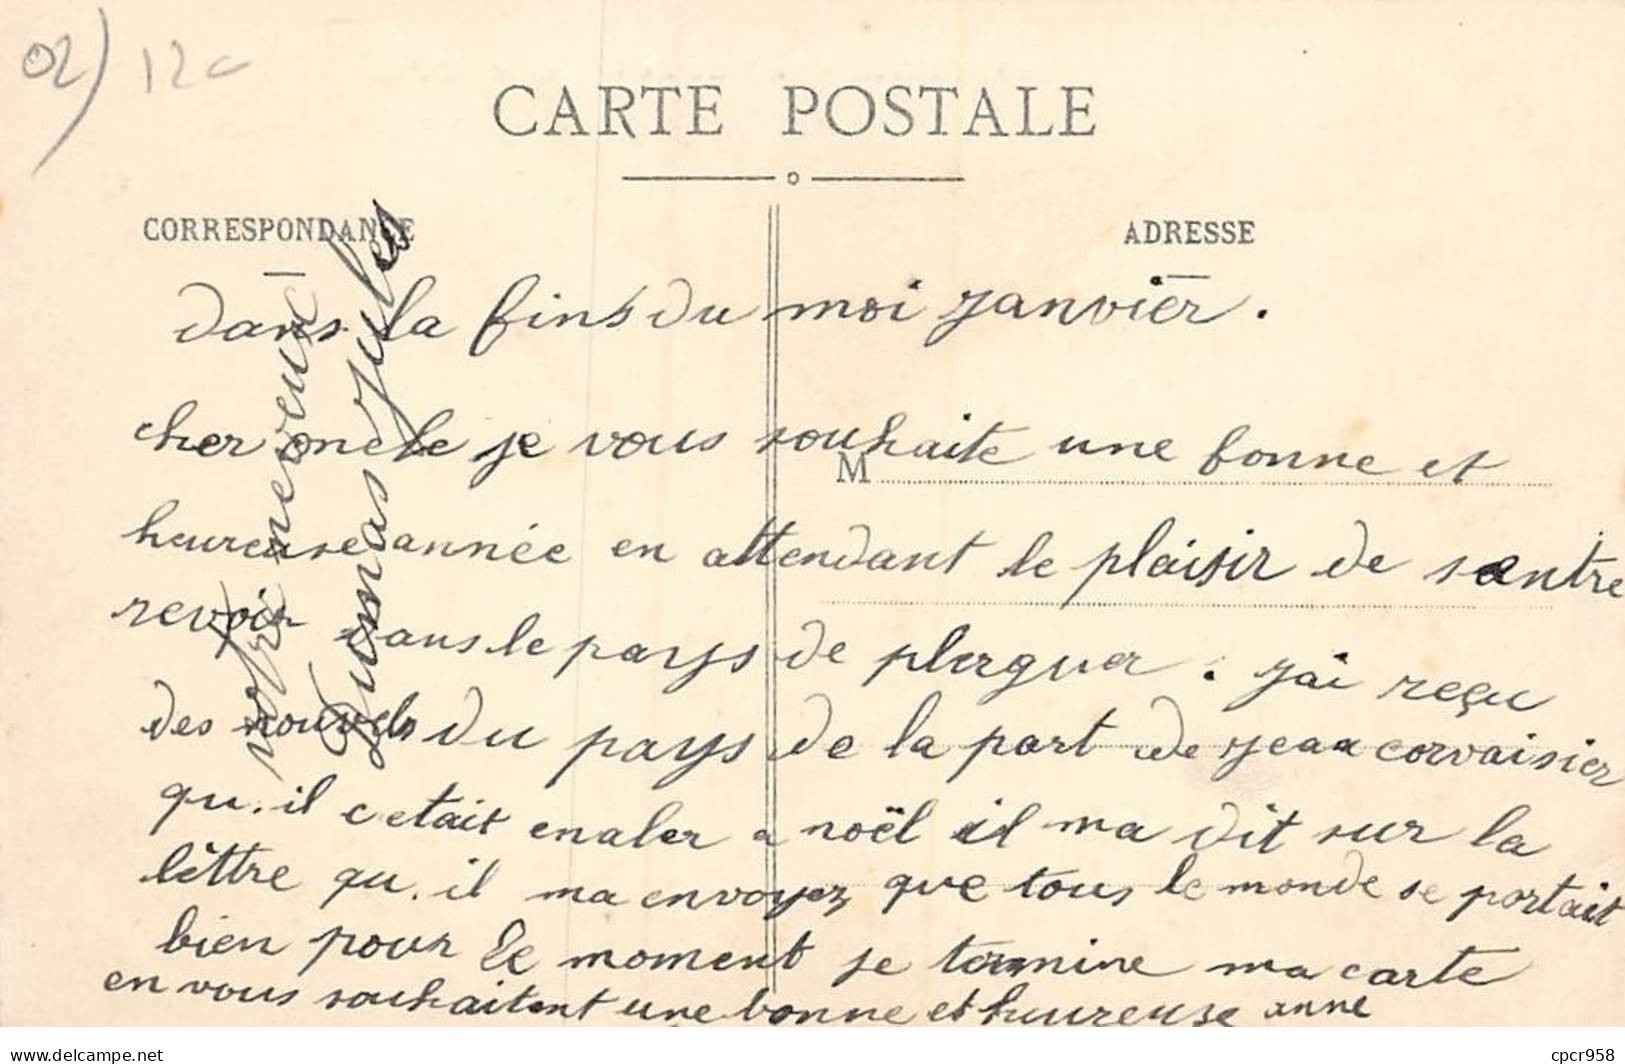 02) 12c
CARTE POSTALE
CORRESPONDANCE
ADRESSE
dans la fins du moi janvier.
cher oncle je vous souhaite une bonne et
M
heureuse année en attendant le plaisir de sentre
revoir dans le pays de plerguer. jai reçu
des nouvels du pays de la part de jean corvaisier
qu.il cetait enaler a noël il ma dit sur la
lèttre qu.il ma envoyez que tous le monde se portait
bien pour le moment je termine ma carte
en vous souhaitent une bonne et heureuse anne
votre neveux
Dumas jules
www.delcampe.net
cpcr958